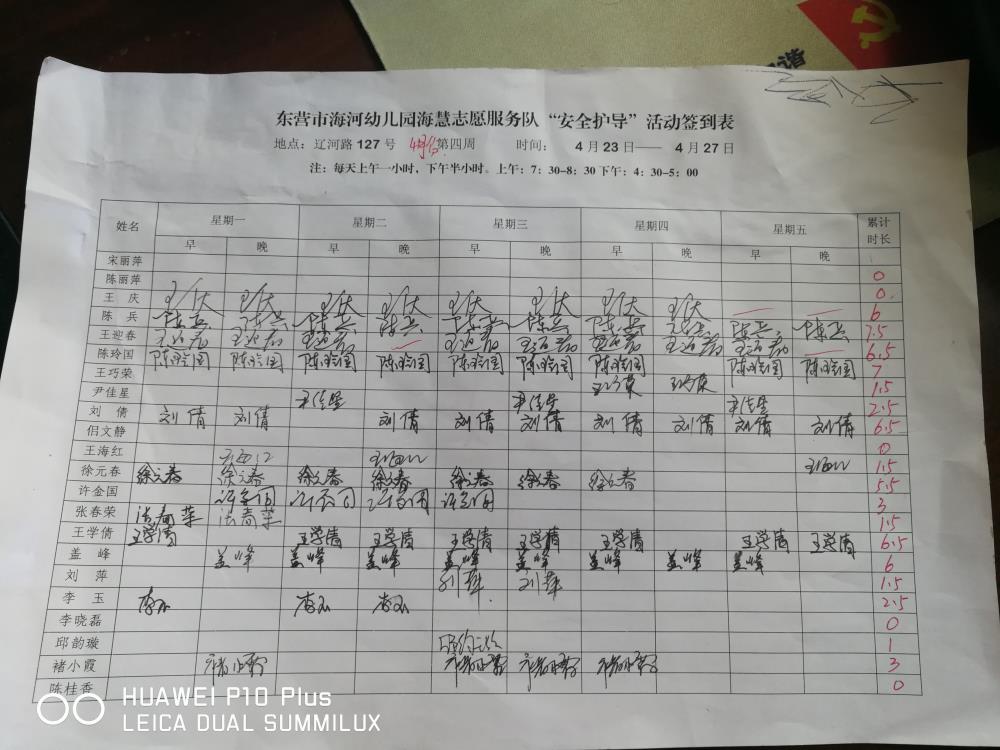 谐
东营市海河幼儿园海慧志愿服务队“安全护导”活动签到表
地点：辽河路 127 号 4月份第四周 时间： 4 月 23 日—— 4 月 27 日
注：每天上午一小时，下午半小时。上午：7：30-8：30 下午：4：30-5：00
姓名 星期一 星期二 星期三 星期四 星期五 累计时长
早 晚 早 晚 早 晚 早 晚 早 晚
宋丽萍
陈丽萍 0
王 庆 王庆 王庆 王庆 王庆 王庆 王庆 王庆 王庆 0
陈 兵 陈兵 陈兵 陈兵 陈兵 陈兵 陈兵 陈兵 陈兵 陈兵 6
王迎春 王迎春 王迎春 王迎春 王迎春 王迎春 王迎春 王迎春 王迎春 7.5
陈玲国 陈玲国 陈玲国 陈玲国 陈玲国 陈玲国 陈玲国 陈玲国 陈玲国 陈玲国 6.5
王巧荣 王巧荣 王巧荣 7
尹佳星 尹佳星 尹佳星 尹佳星 1.5
刘 倩 刘倩 刘倩 刘倩 刘倩 刘倩 刘倩 刘倩 刘倩 刘倩 2.5
佀文静 6.5
王海红 王海红 王海红 王海红 0
徐元春 徐元春 徐元春 徐元春 徐元春 徐元春 徐元春 徐元春 1.5
许金国 许金国 许金国 许金国 许金国 5.5
张春荣 张春荣 张春荣 3
王学倩 王学倩 王学倩 王学倩 王学倩 王学倩 王学倩 王学倩 王学倩 1.5
盖 峰 盖峰 盖峰 盖峰 盖峰 盖峰 盖峰 盖峰 盖峰 6.5
刘 萍 刘萍 刘萍 6
李 玉 李玉 李玉 李玉 1.5
李晓磊 2.5
邱韵璇 邱韵璇 0
褚小霞 褚小霞 褚小霞 褚小霞 褚小霞 1
陈桂香 3
0
HUAWEI P10 Plus
LEICA DUAL SUMMILUX